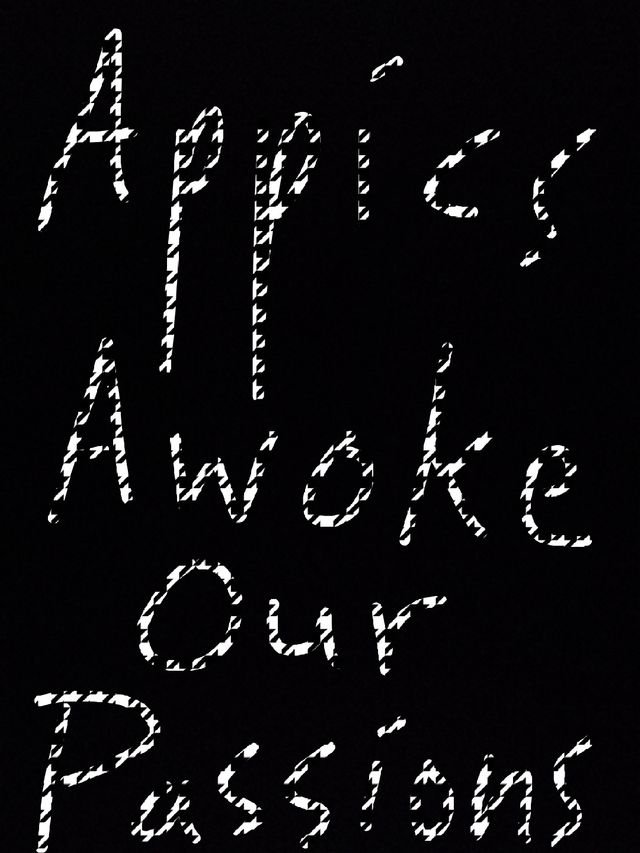 Appics
Awoke
Our
Passions